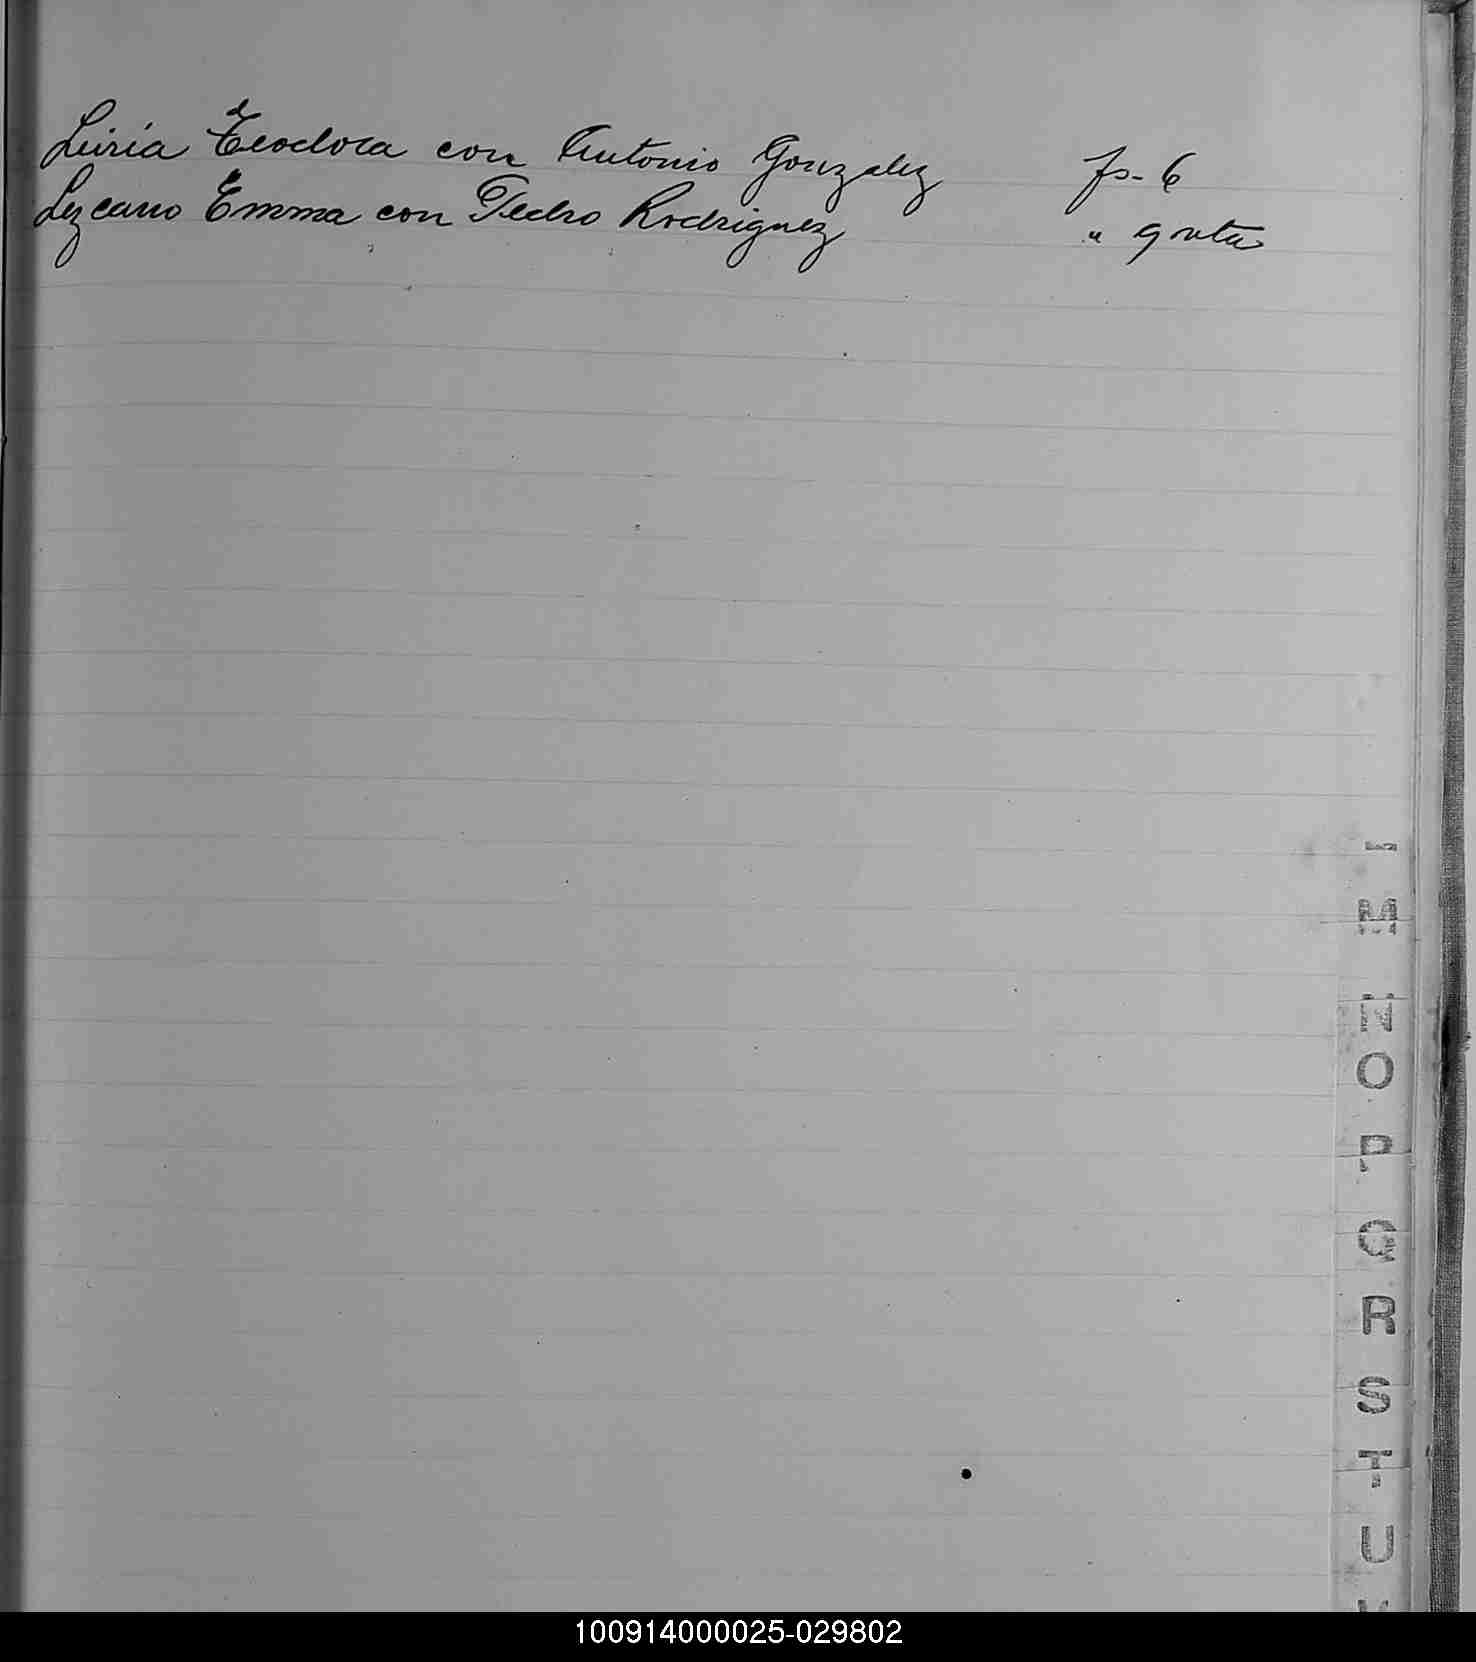 Liria Teodora con Antonio Gonzalez fs- 6
Lezcano Emma con Pedro Rodriguez " 9 vta
L
M
N
O
P
Q
R
S
T
U
V
100914000025-029802